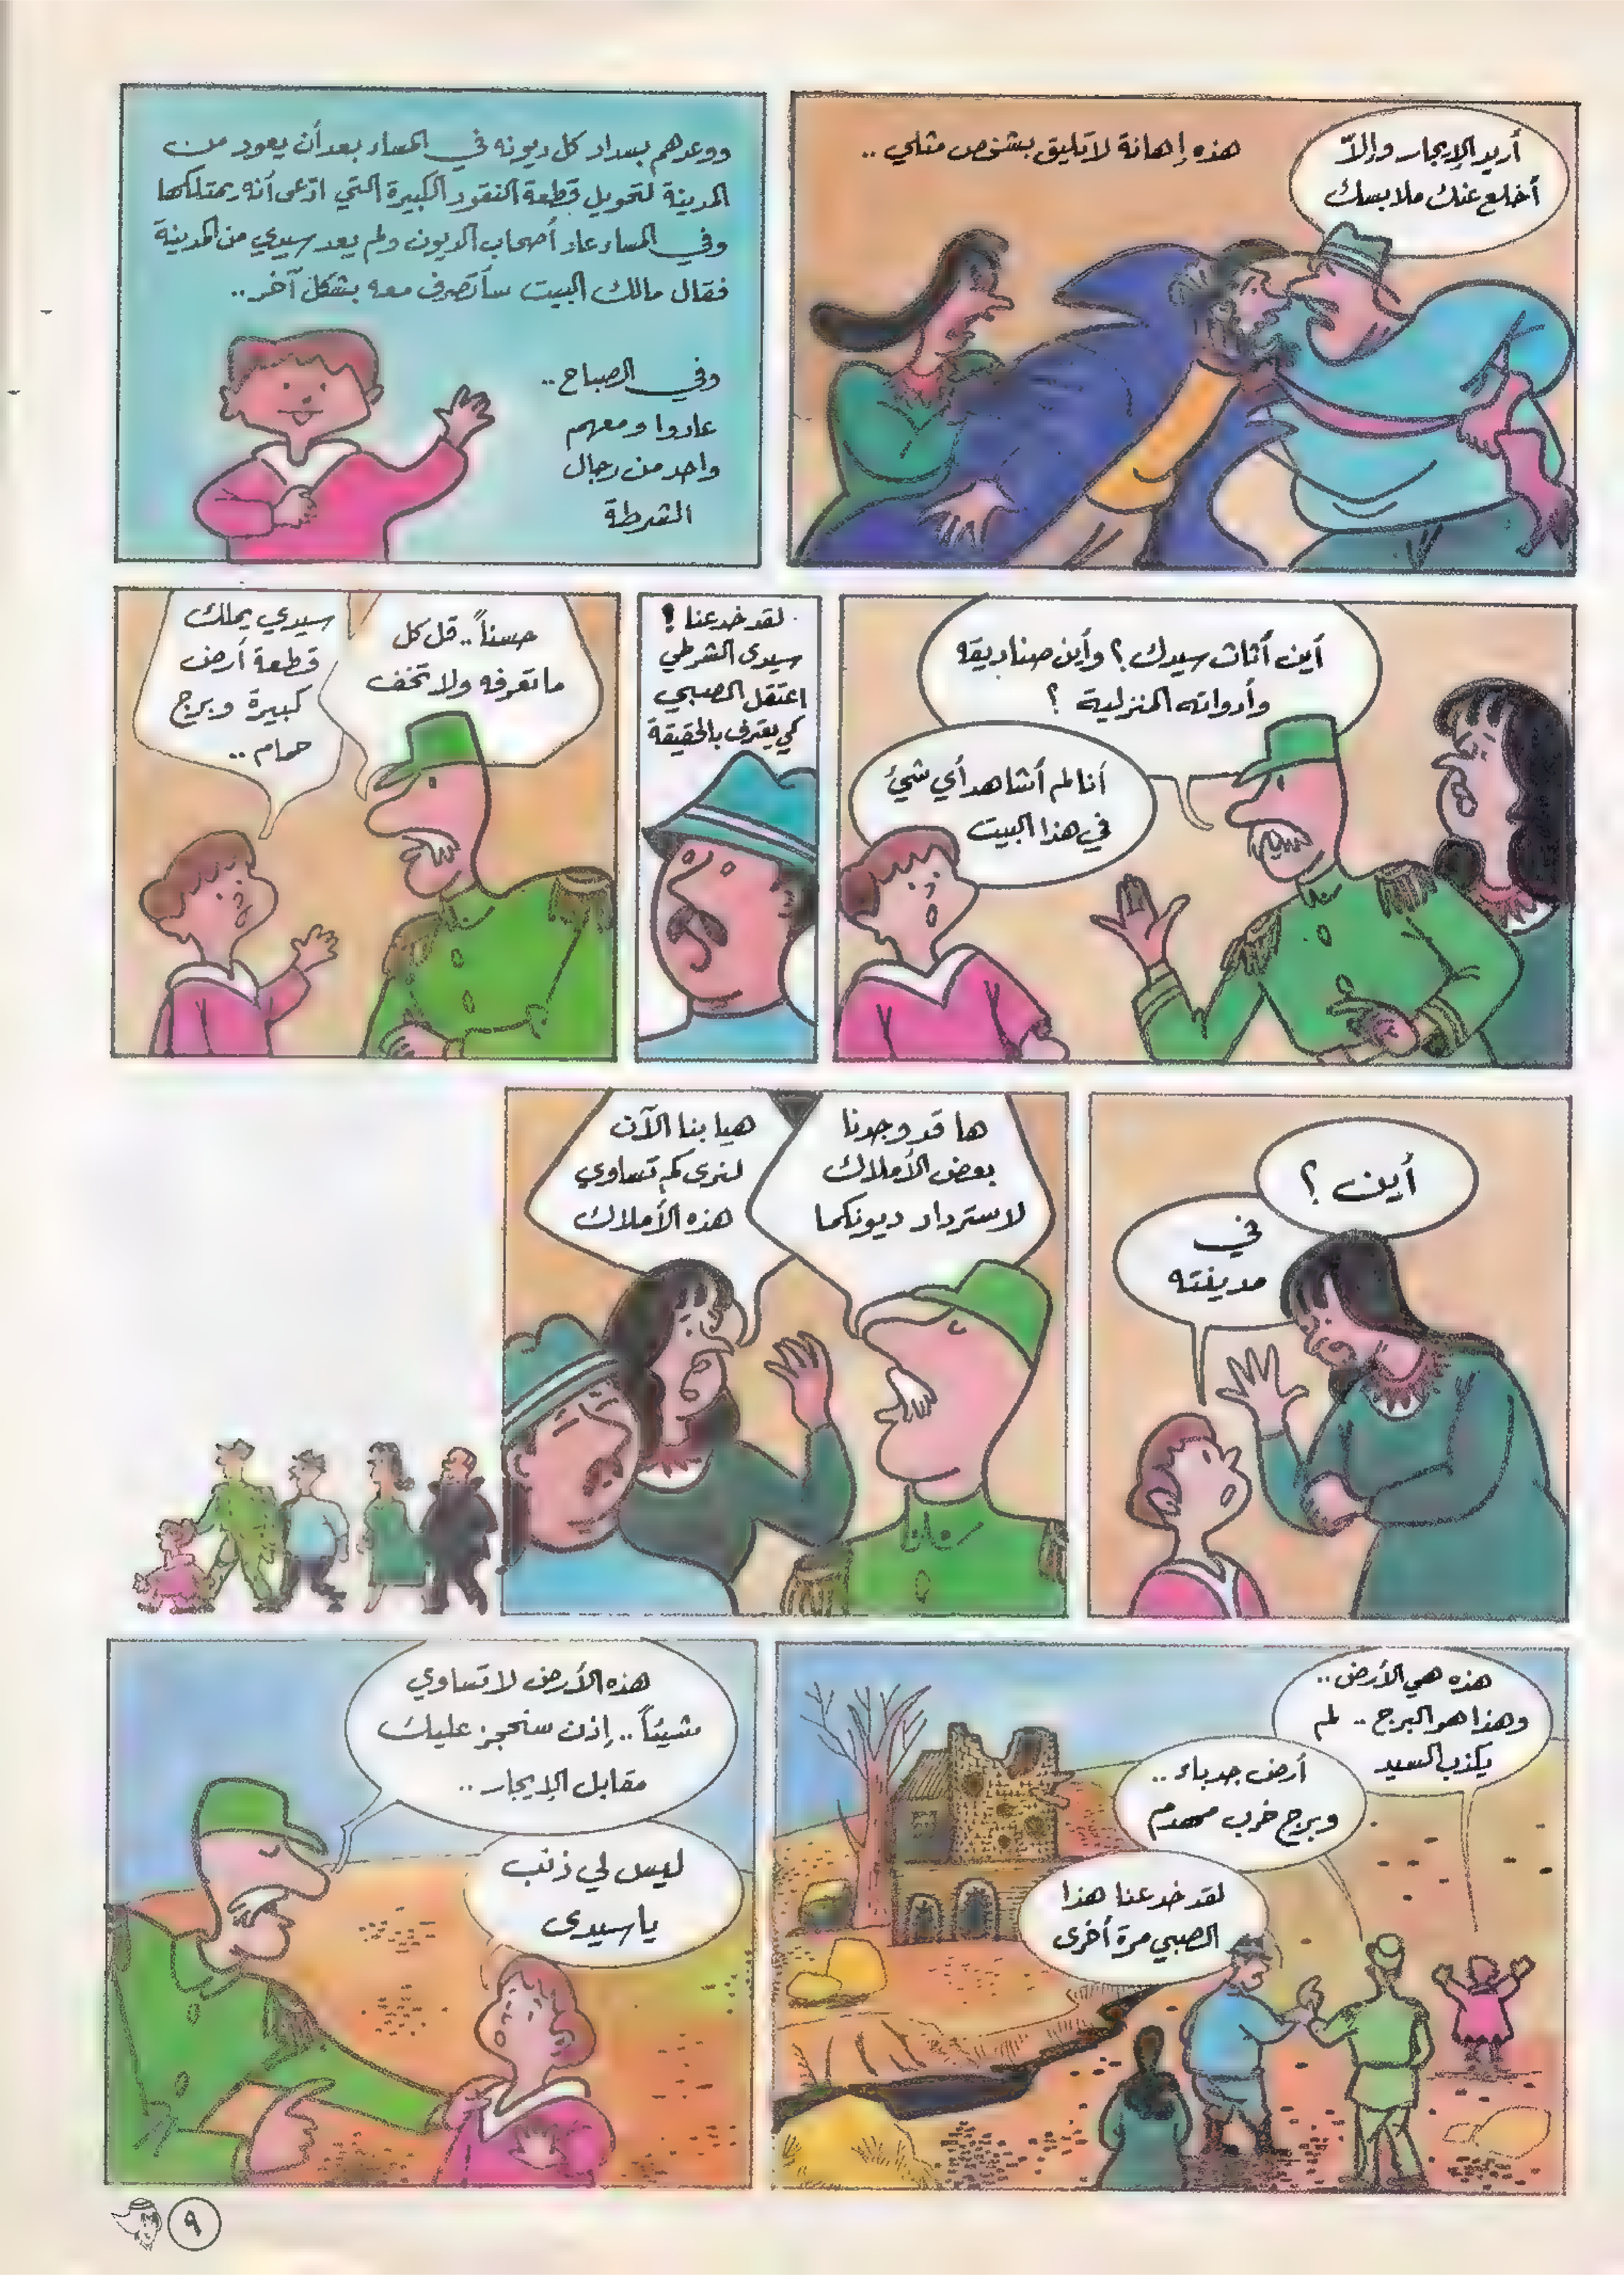 أريد الإيجار وإلاّ
أخلع عنك ملابسك
هذه إهانة لا تليق بشخص مثلي ..
ووعدهم بسداد كل ديونه في المساء بعد أن يعود من
المدينة لتحويل قطعة النقود الكبيرة التي ادّعى أنه يمتلكها
وفي المساء عاد أصحاب الديون ولم يعد سيدي من المدينة
فقال مالك البيت سأتصرف معه بشكل آخر ..
وفي الصباح ..
عادوا ومعهم
واحد من رجال
الشرطة
أين أثاث سيدك ؟ وأين صناديقه
وأدواته المنزلية ؟
أنا لم أشاهد أي شيئ
في هذا البيت
لقد خدعنا !
سيدى الشرطي
اعتقل الصبي
كي يعترف بالحقيقة
حسناً .. قل كل
ماتعرفه ولا تخف
سيدي يملك
قطعة أرض
كبيرة وبرج
حمام ..
أين ؟
في
مدينته
ها قد وجدنا
بعض الأملاك
لاسترداد ديونكما
هيا بنا الآن
لنرى كم تساوي
هذه الأملاك
هذه هي الأرض ..
وهذا هو البرج .. لم
يكذب السيد
أرض جدباء ..
وبرج خرب مهدم
لقد خدعنا هذا
الصبي مرة أخرى
هذه الأرض لا تساوي
شيئاً .. إذن سنحجز عليك
مقابل الإيجار ..
ليس لي ذنب
يا سيدى
٩